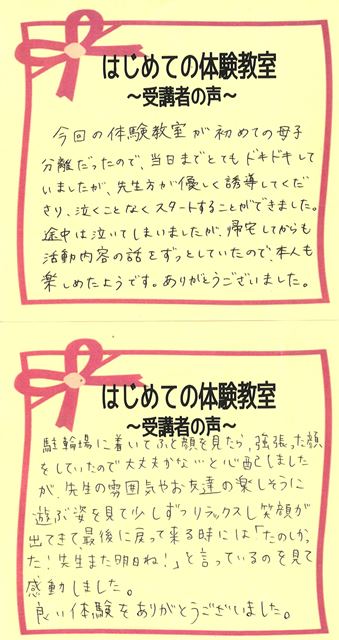 はじめての体験教室
～受講者の声～
今回の体験教室が初めての母子
分離だったので、当日までとてもドキドキして
いましたが、先生方が優しく誘導してくだ
さり、泣くことなくスタートすることができました。
途中は泣いてしまいましたが、帰宅してからも
活動内容の話をずっとしていたので、本人も
楽しめたようです。ありがとうございました。
はじめての体験教室
～受講者の声～
駐輪場に着いてふと顔を見たら、強張った顔
をしていたので大丈夫かな…と心配しました
が、先生の雰囲気やお友達の楽しそうに
遊ぶ姿を見て少しずつリラックスし笑顔が
出てきて、最後に戻って来る時には「たのしかっ
た!先生また明日ね!」と言っているのを見て
感動しました。
良い体験をありがとうございました。